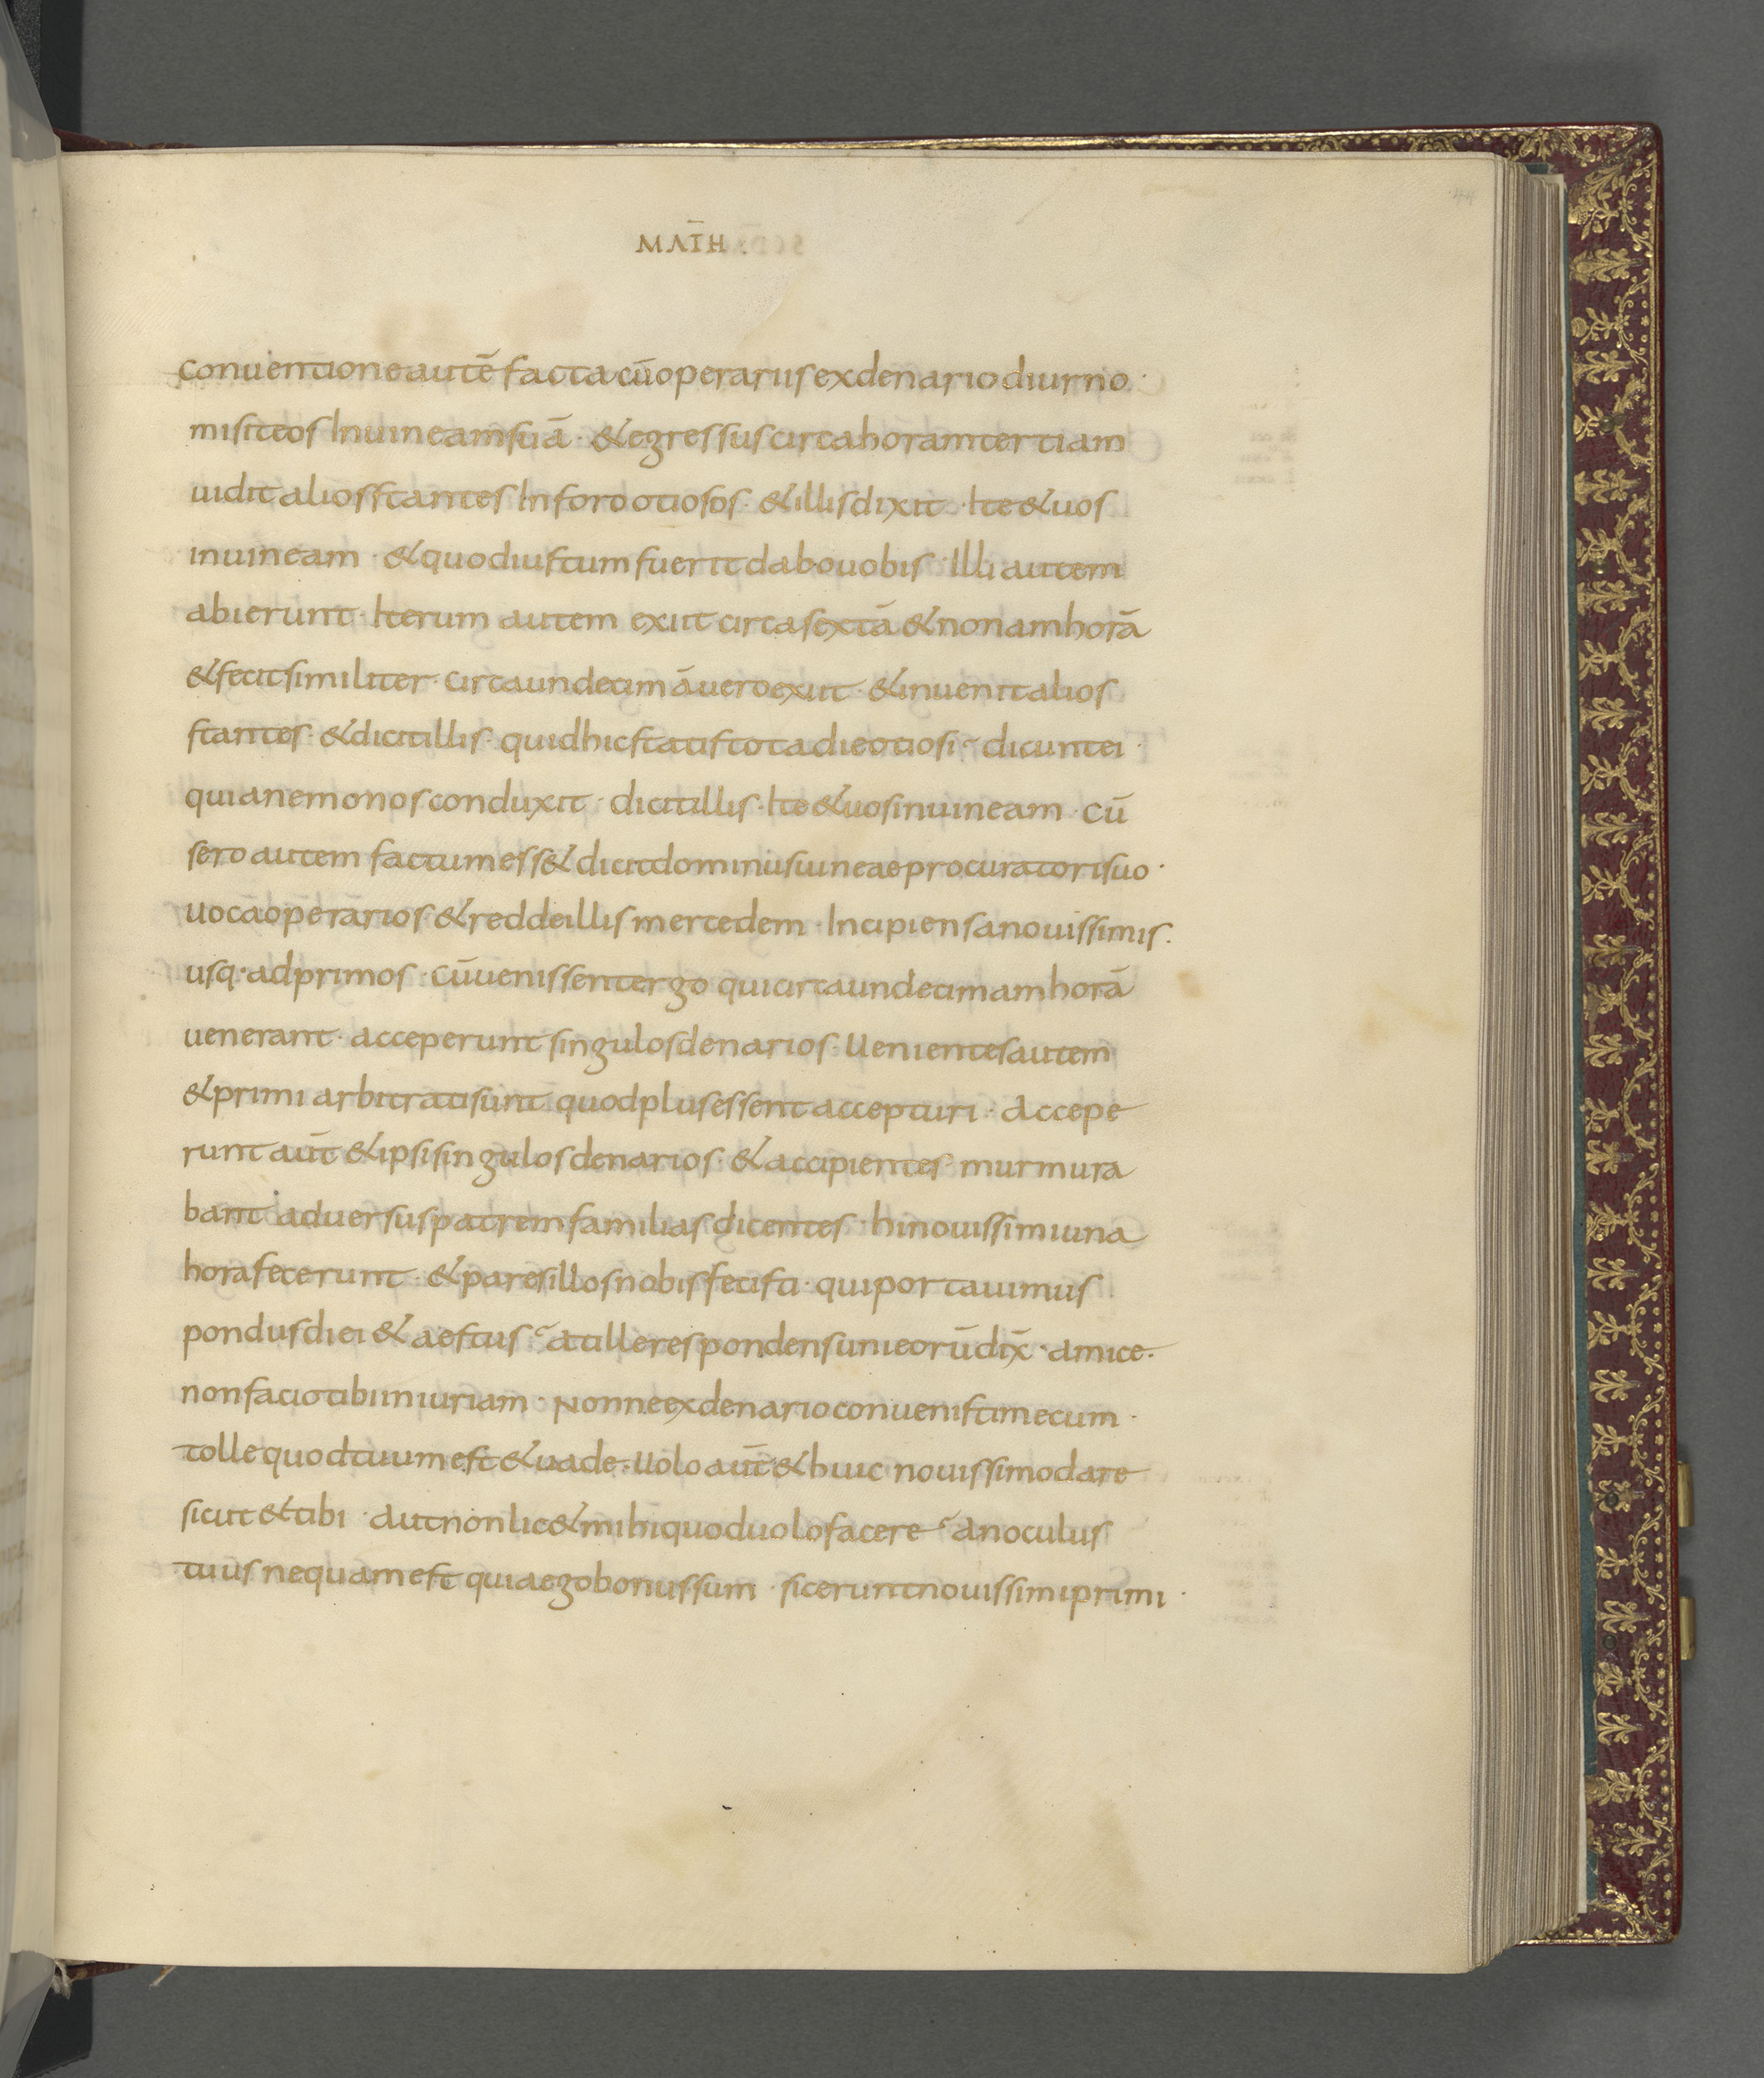 MAT̄H
conuentione autē facta cū operariis ex denario diurno ·
misit eos In uineam suā · & egressus circa horam tertiam
uidit alios stantes In foro otiosos · & illis dixit · Ite & uos
in uineam · & quod iustum fuerit dabo uobis · Illi autem
abierunt · Iterum autem exiit circa sextā & nonam horā
& fecit similiter · circa undecimā uero exiit · & inuenit alios
stantes · & dicit illis · quid hic statis tota die otiosi · dicunt ei ·
quia nemo nos conduxit · dicit illis · Ite & uos in uineam · cū
sero autem factum ess& dicit dominus uineae procuratori suo ·
uoca operarios & redde illis mercedem · Incipiens a nouissimis ·
usq· ad primos · cū uenissent ergo qui circa undecimam horā
uenerant · acceperunt singulos denarios · Uenientes autem
& primi arbitrati sunt quod plus essent accepturi · accepe
runt aūt & ipsi singulos denarios · & accipientes murmura
bant aduersus patrem familias dicentes · hi nouissimi una
hora fecerunt · & pares illos nobis fecisti · qui portauimus
pondus diei & aestus · at ille respondens uni eorū dix̄ · amice ·
non facio tibi iniuriam · Nonne ex denario conuenisti mecum ·
tolle quod tuum est & uade · Uolo aūt & huic nouissimo dare
sicut & tibi · aut non lic& mihi quod uolo facere · an oculus
tuus nequam est quia ego bonus sum · sic erunt nouissimi primi ·